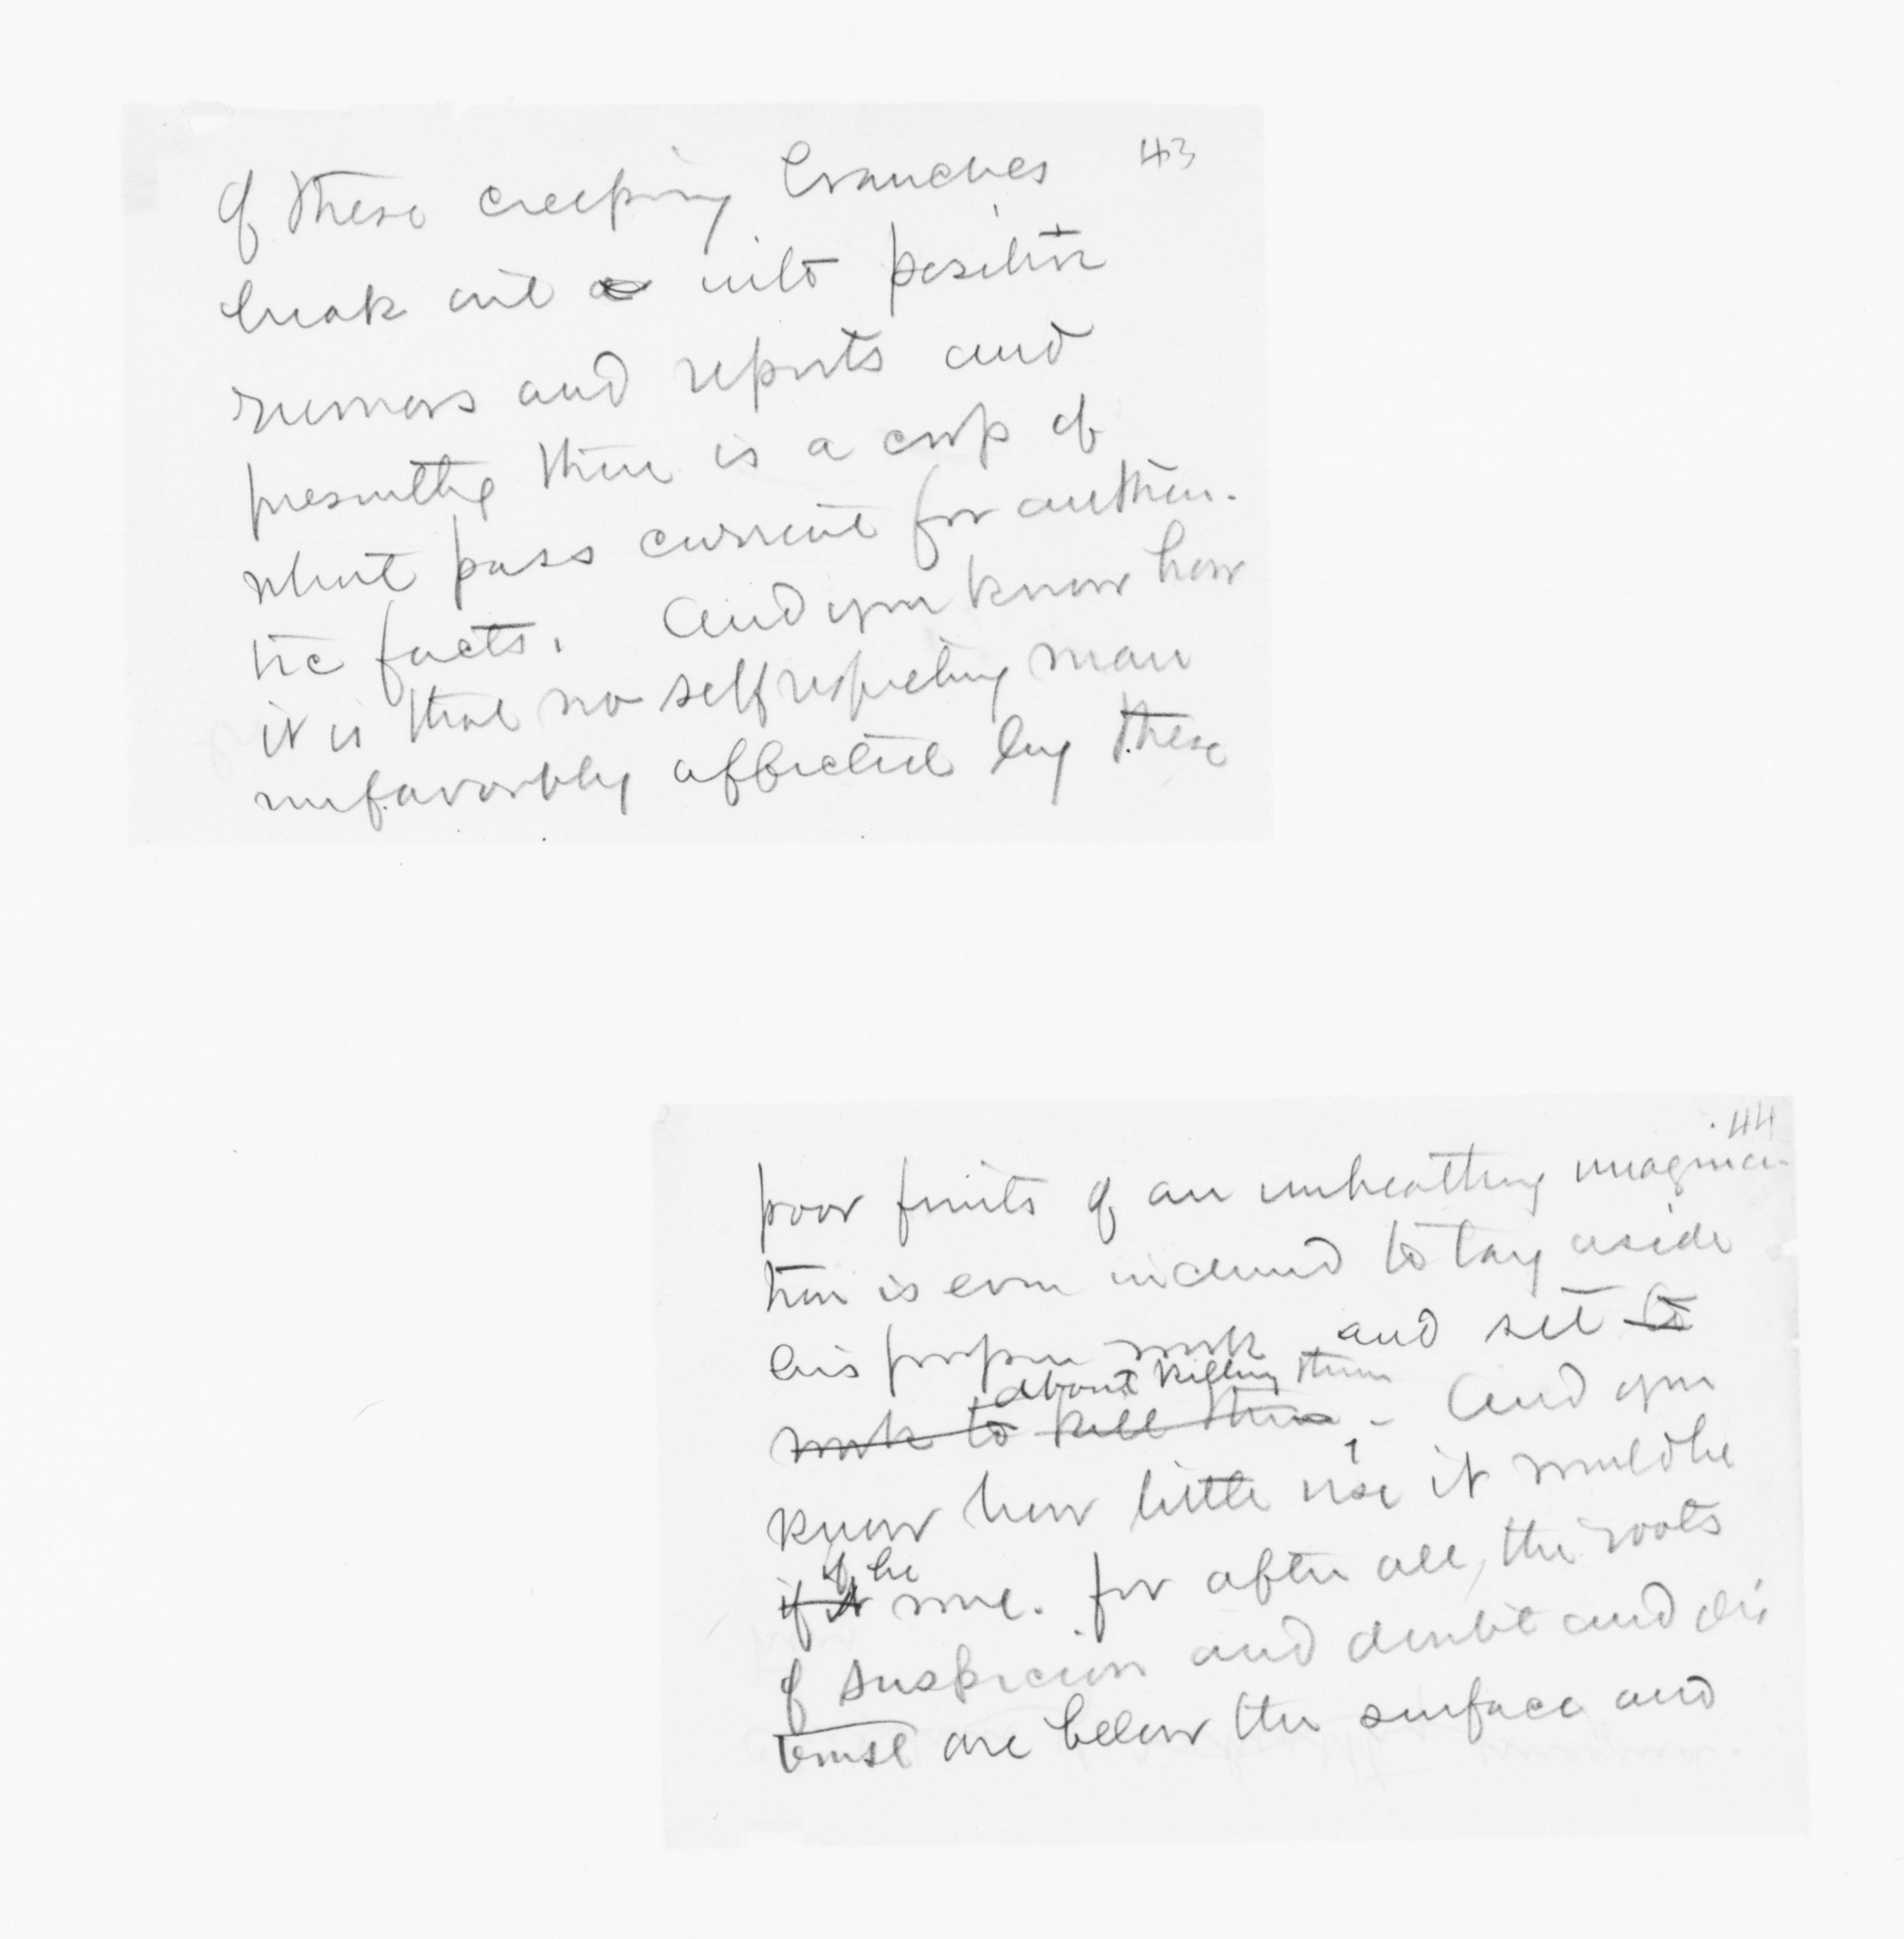 43
of these creeping branches
break out into positive
rumors and reports and
presently there is a crop of
what pass current for authen-
tic facts. And you know how
it is that no self respecting man
unfavorably affected by these
44
poor fruits of an unhealthy imagina-
tion is ever inclined to lay aside
his proper work and set to
about killing them
work to kill them. And you
know how little use it would be
if he
if it were. for after all, the roots
of suspicion and doubt and dis
trust are below the surface and